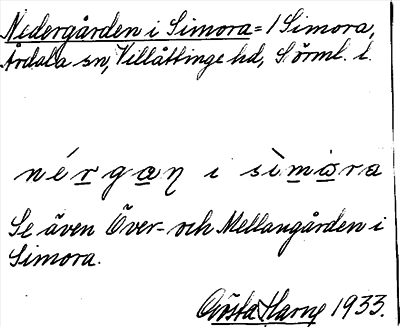 Nedergården i Simora = 1 Simora,
Årdala sn, Villåttinge hd, Sörml. l.
nérgan i sìmåra
Se även Över- och Mellangården i
Simora.
Gösta Harne 1933.